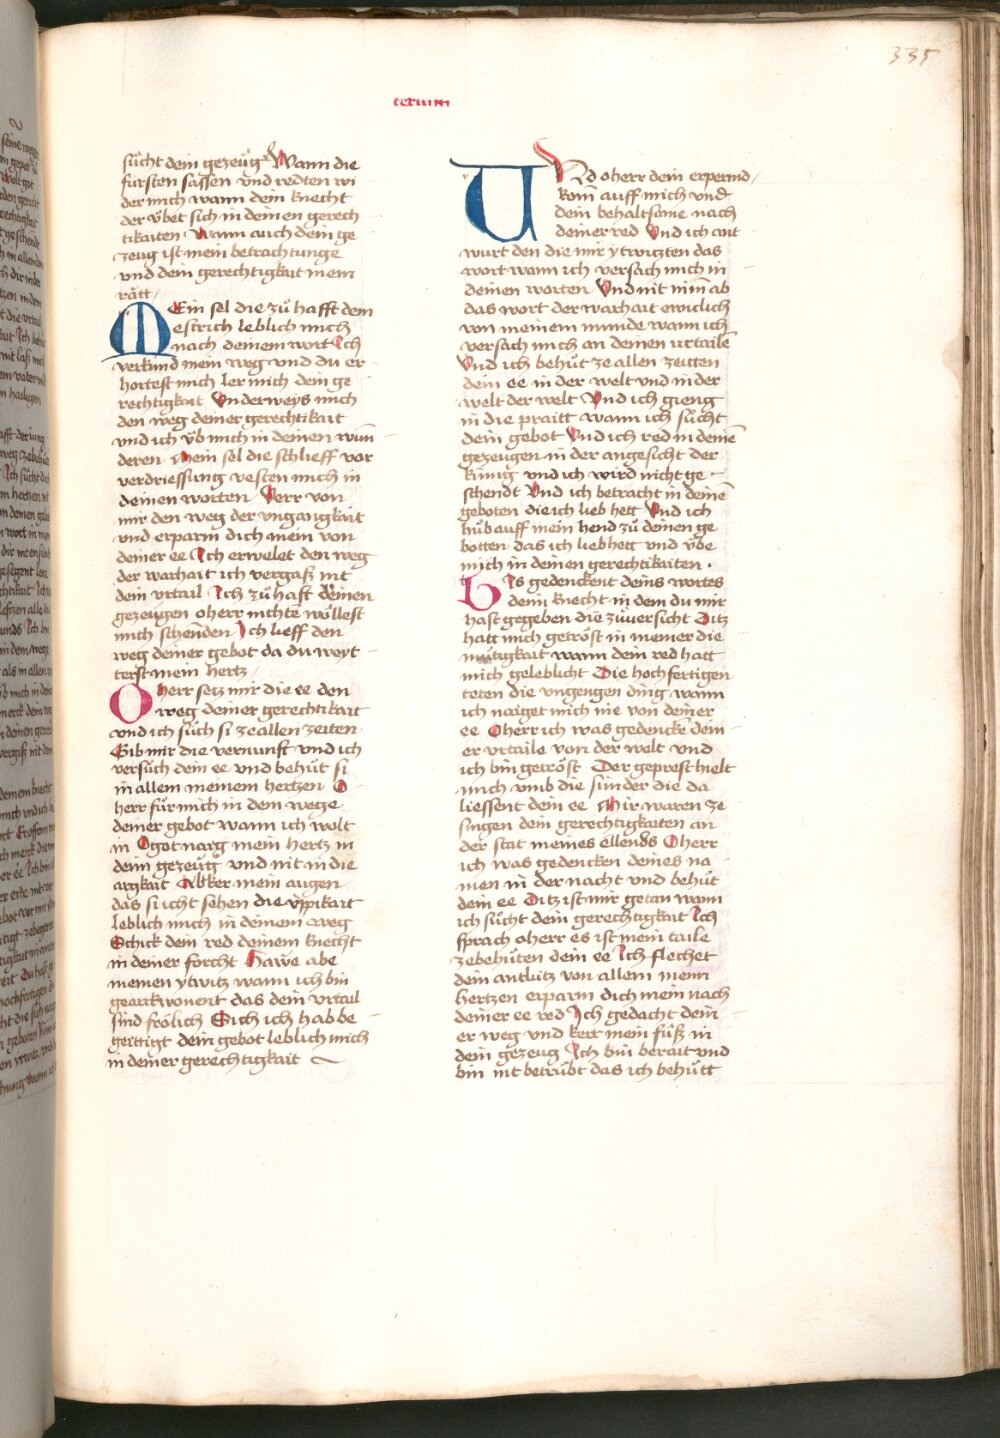 335
terium
sůcht dein gezeüg Wann die
fursten sassen vnd redten wi
der mich wann dein knecht
der vͤbet sich in deinen gerech
tikaiten Wann auch dein ge
zeug ist mein betrachtunge
vnd dein gerechtigkait mein
rätt
MEin sel die zů hafft dem
estrich leblich mich
nach deinem wort Ich
verkund mein weg vnd du er
hortest mich ler mich dein ge
rechtigkait Vnderweys mich
den weg deiner gerechtikait
vnd ich vͤb mich in deinen wun
deren Mein sel die schlieff vor
verdriessung vesten mich in
deinen worten Verr von
mir den weg der vngangkait
vnd erparm dich mein von
deiner ee Ich erwelet den weg
der warhait ich vergaß nit
dein vrtail Ich zů haft deinen
gezeugen o herr nichte wöllest
mich schenden Ich lieff den
weg deiner gebot da du weyt
terst mein hertz
O herr setz mir die ee den
weg deiner gerechtikait
vnd ich sůch si ze allen zeiten
Gib mir die vernunft vnd ich
versůch dein ee vnd behůt si
in allem meinem hertzen O
herr fůr mich in dem wege
deiner gebot wann ich wolt
in O got naig mein hertz in
dein gezeüg vnd nit in die
argkait Abker mein augen
das si icht sehen die vppikait
leblich mich in deinem weg
Schick dein red deinem knecht
in deiner forcht Hawe abe
meinen ytwitz wann ich bin
gearkwonent das dein vrtail
sind frölich Sich ich hab be
geittigt dein gebot leblich mich
in deiner gerechtigkait
VNd o herr dein erpermd
kom auff mich vnd
dein behaltsame nach
deiner red Vnd ich ant
wurt den die mir ytwizten das
wort wann ich versach mich in
deinen worten Vnd nit nim ab
das wort der warhait ewiclich
von meinem munde wann ich
versach mich an deinen vrtaile
Vnd ich behůt ze allen zeitten
dein ee in der welt vnd in der
welt der welt Vnd ich gieng
in die praitt wann ich sůcht
dein gebot Vnd ich red in deine
gezeugen in der angesicht der
kunig vnd ich wird nicht ge
schendt Vnd ich betracht in deine
geboten die ich lieb hett Vnd ich
hůb auff mein hend zů deinen ge
botten das ich lieb hett vnd vͤbe
mich in deinen gerechtikaiten
BIs gedenckent deins wortes
deim knecht in dem du mir
hast gegeben die zůuersicht Ditz
hatt mich getröst in meiner die
mütigkait wann dein red hatt
mich geleblicht Die hochfertigen
teten die vngengen ding wann
ich naiget mich nie von deiner
ee O herr ich was gedencke dein
er vrtaile von der welt vnd
ich bin getröst Der geprest hielt
mich vmb die sunder die da
liessent dein ee Mir waren ze
singen dein gerechtigkaiten an
der stat meines ellends O herr
ich was gedencken deines na
men in der nacht vnd behůt
dein ee Ditz ist mir getan wann
ich sůcht dein gerechtigkait Ich
sprach o herr es ist mein taile
ze behůten dein ee Ich flechet
dein antlütz von allem meim
hertzen erparm dich mein nach
deiner ee red Ich gedacht dein
er weg vnd kert mein fůß in
dein gezeug Ich bin berait vnd
bin nit betrübt das ich behütt